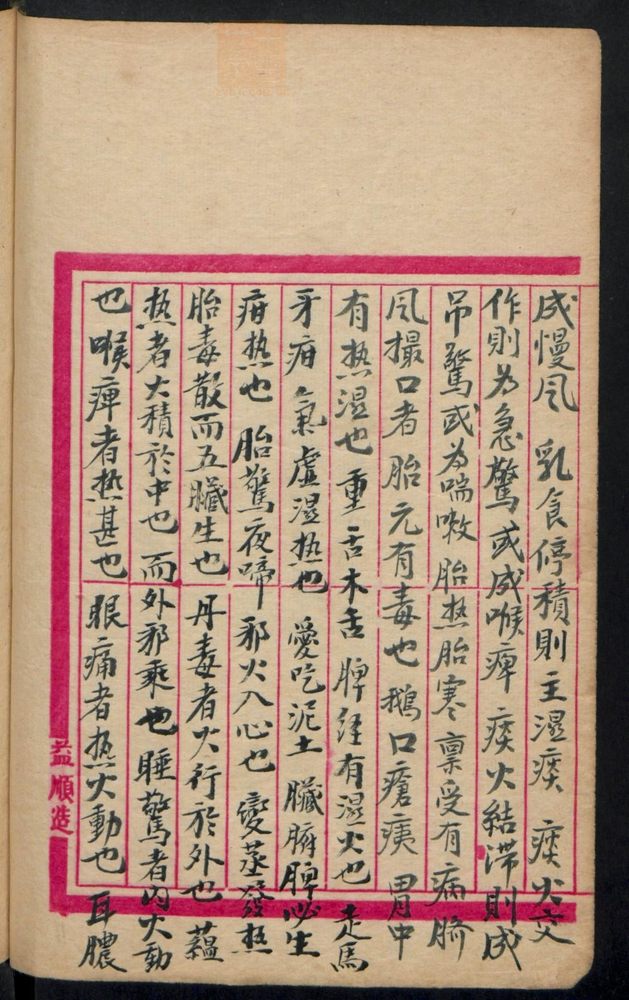 成慢风 乳食停積則主濕痰 痰火交
作則为急驚或成喉痺 痰火結滯則成
吊驚或为喘嗽 胎热胎寒 禀受有病 臍
风撮口者 胎元有毒也 鵝口瘡痍 胃中
有热濕也 重舌木舌 脾经有濕火也 走馬
牙疳 氣虛濕热也 愛吃泥土 臟腑脾必生
疳热也 胎驚夜啼 邪火入心也 變蒸發热
胎毒散而五臟生也 丹毒者火行於外也 蘊
热者火積於中也 而外邪乘也 睡驚者內火動
也 喉痺者热甚也 眼痛者热火動也 耳膿
益順造